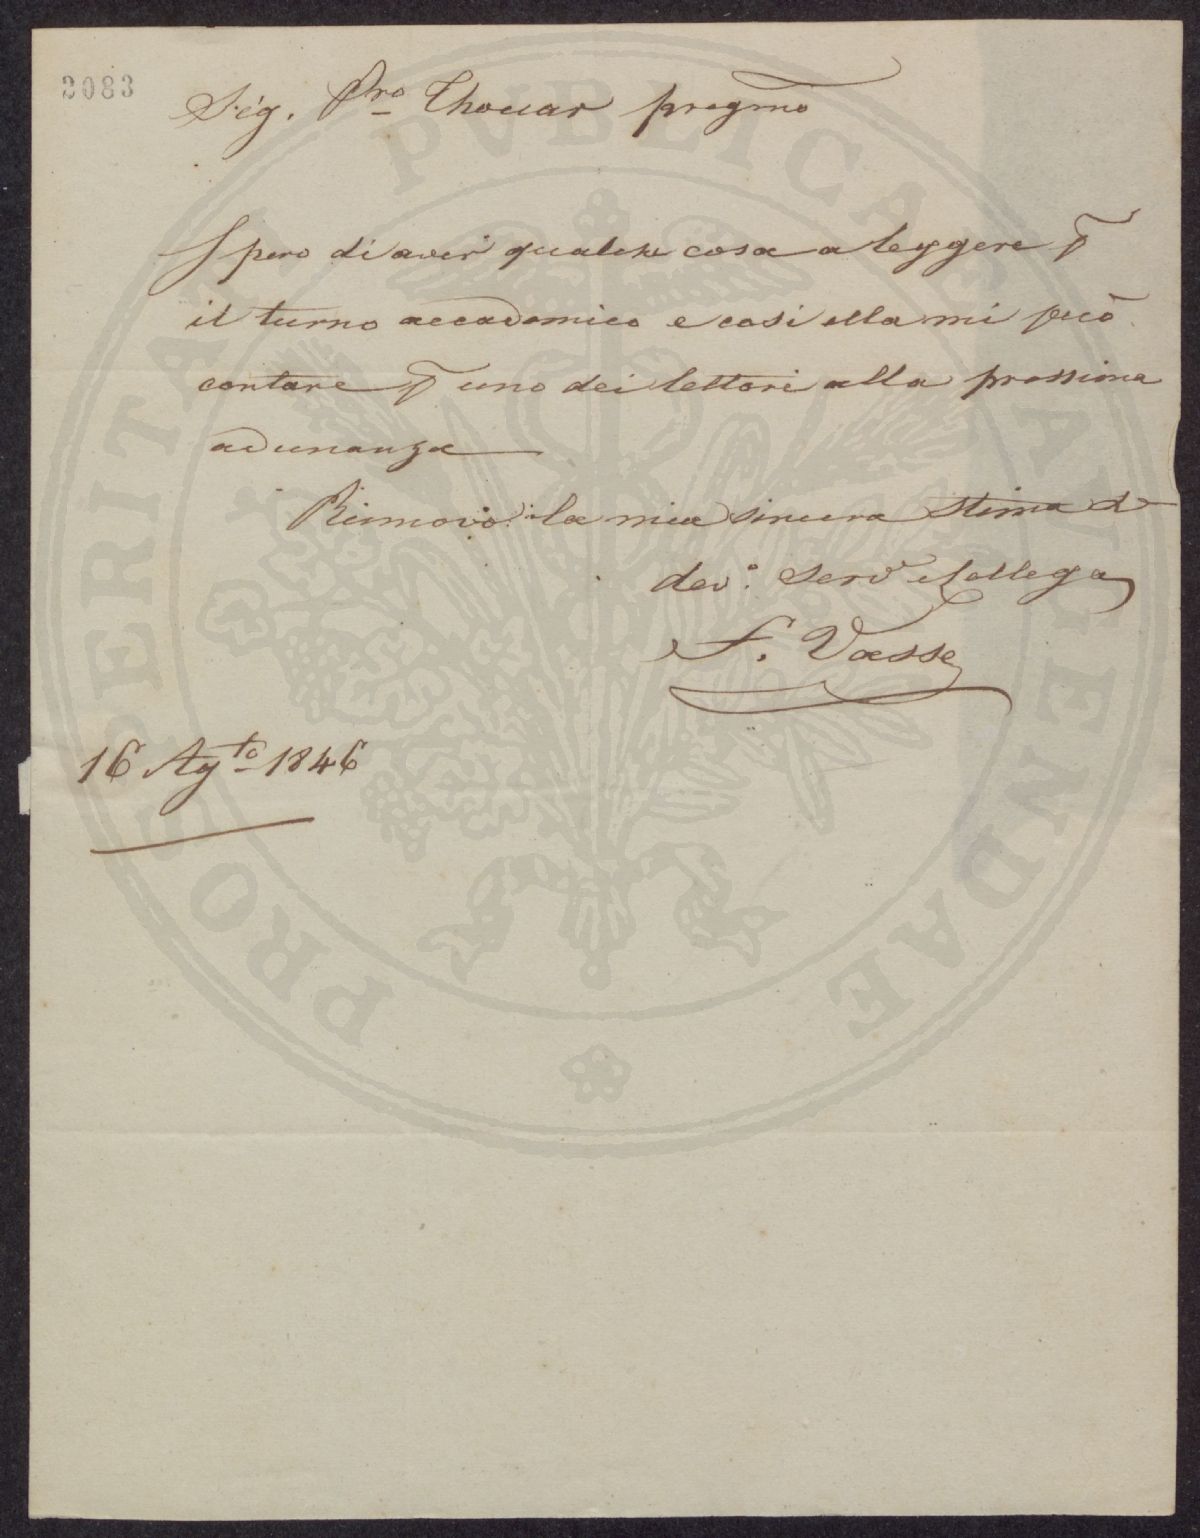 2083
Sig. Pro Thouar pregmo
Spero di aver qualche cosa a leggere p
il turno accademico e così ella mi può
contare p uno dei lettori alla prossima
adunanza
Rinnovo la mia sincera stima e
dev.o serv.e e collega
F. Vasse
16 Agto 1846
PROSPERITATI PVBLICAE AVGENDAE